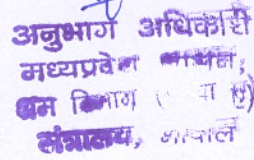 अनुभाग अधिकारी
मध्यप्रदेश शासन,
श्रम विभाग
मंत्रालय, भोपाल